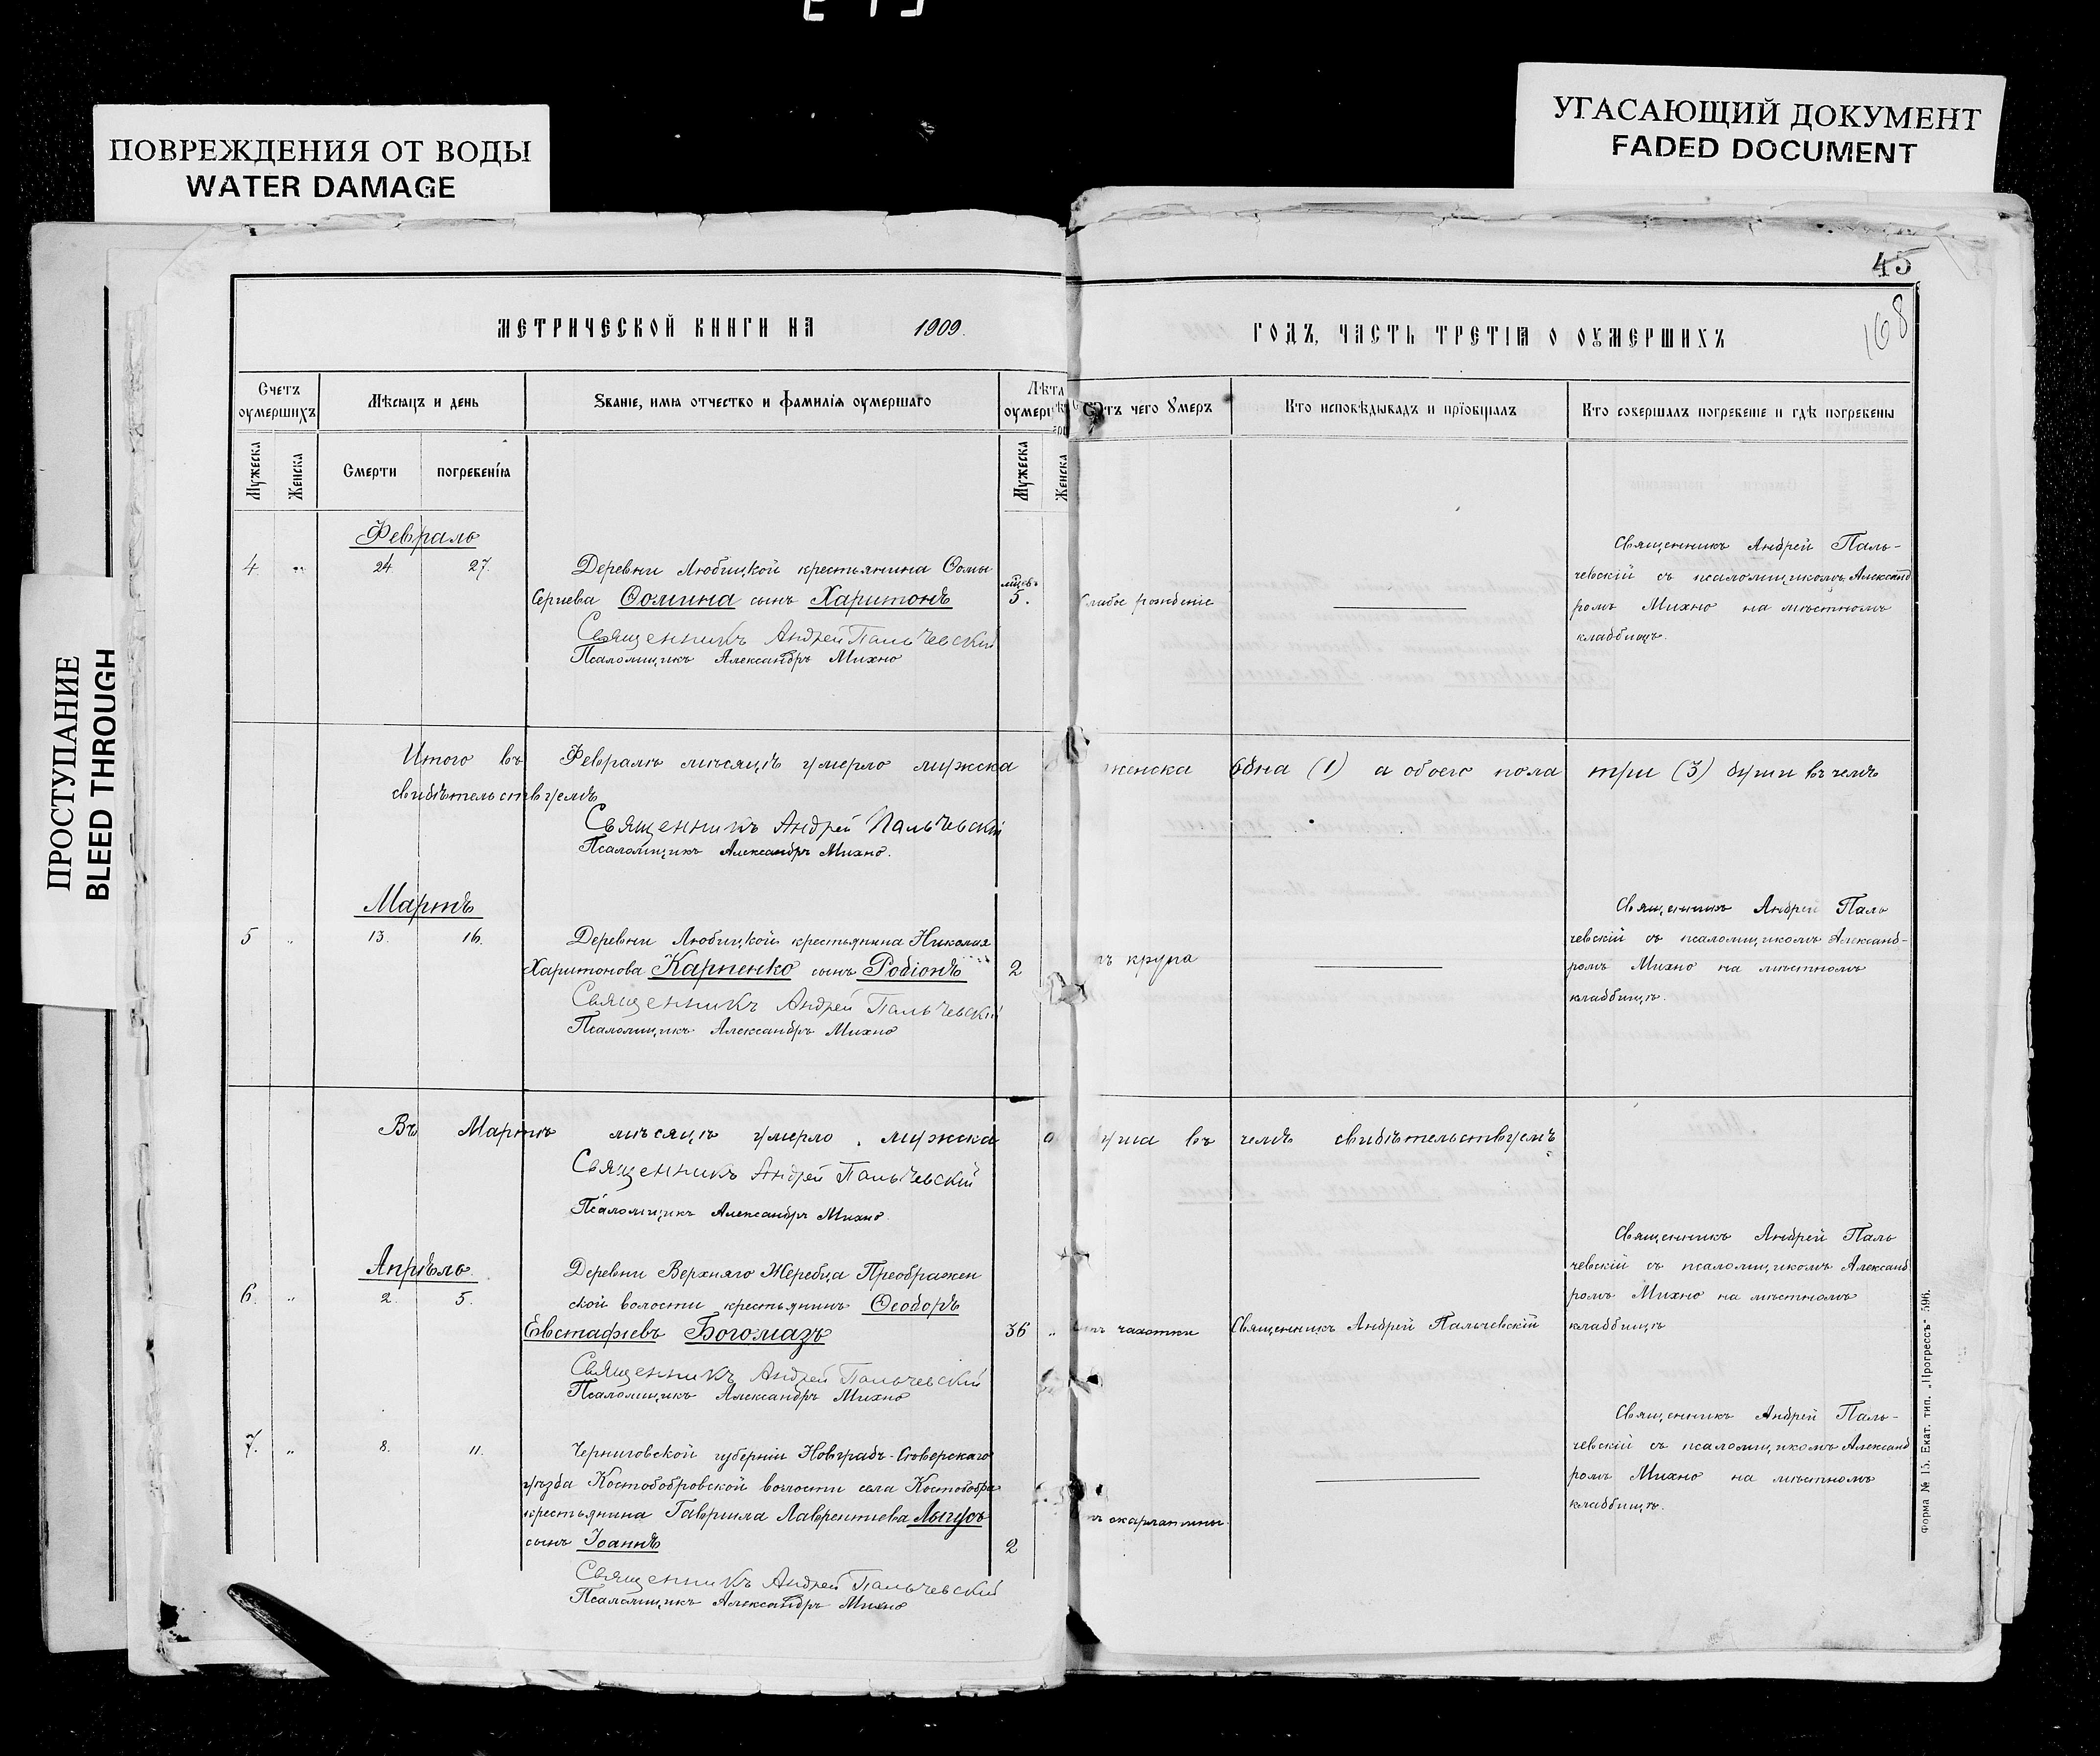 ПОВРЕЖДЕНИЯ ОТ ВОДЫ
WATER DAMAGE
УГАСАЮЩИЙ ДОКУМЕНТ
FADED DOCUMENT
ПРОСТУПАНИЕ
BLEED THROUGH
45
168
МЕТРИЧЕСКОЙ КНИГИ НА 1909.
ГОДЪ, ЧАСТЬ ТРЕТІѦ О ОУМЕРШИХЪ
Счетъ оумершихъ
Мѣсяцъ и день
Званіе, имя отчество и фамилія оумершаго
Лѣта
Отъ чего Умеръ
Кто исповѣдывалъ и пріобщалъ
Кто совершалъ погребеніе и гдѣ погребены
Мужеска
Женска
Смерти
погребенія
Мужеска
Женска
Февраль
4. 24. 27.
Деревни Любицкой крестьянина Ѳомы
Сергиева Ѳомина сынъ Харитонъ
5.
Слабое рожденіе
Священникъ Андрей Пальчевский
Псаломщикъ Александръ Михно
Священникъ Андрей Паль-
чевскій съ псаломщикомъ Александ
ромъ Михно на мѣстномъ
кладбищѣ.
Итого въ Февралѣ мѣсяцѣ умерло мужска
женска одна (1) а обоего пола три (3) души въ чемъ
свидѣтельствуемъ
Священникъ Андрей Пальчевскій
Псаломщикъ Александръ Михно.
Мартъ
5 13. 16.
Деревни Любицкой крестьянина Николая
Харитонова Карпенко сынъ Родіонъ
2
крупа
Священникъ Андрей Пальчевскій
Псаломщикъ Александръ Михно
Священникъ Андрей Паль
чевскій съ псаломщикомъ Александ-
ромъ Михно на мѣстномъ
кладбищѣ.
Въ Мартѣ мѣсяцѣ умерло мужска
душа въ чемъ свидѣтельствуемъ
Священникъ Андрей Пальчевскій
Псаломщикъ Александръ Михно.
Апрѣль.
6. 2. 5.
Деревни Верхняго Жеребца Преображен
ской волости крестьянинъ Ѳеодоръ
Евстафіевъ Богомазъ
36
чахотки
Священникъ Андрей Пальчевскій
Священникъ Андрей Пальчевскій
Псаломщикъ Александръ Михно
Священникъ Андрей Паль
чевскій съ псаломщикомъ Александ
ромъ Михно на мѣстномъ
кладбищѣ
7. 8. 11.
Черниговской губерніи Новградъ-Сѣверскаго
уѣзда Костобобровской волости села Костобобра
крестьянина Гавриила Лаврентиева
сынъ Іоаннъ
2
скарлатины.
Священникъ Андрей Пальчевский
Псаломщикъ Александръ Михно
Священникъ Андрей Паль-
чевскій съ псаломщикомъ Александ
ромъ Михно на мѣстномъ
кладбищѣ.
Форма № 15. Екат. тип. „Прогрессъ" 596.